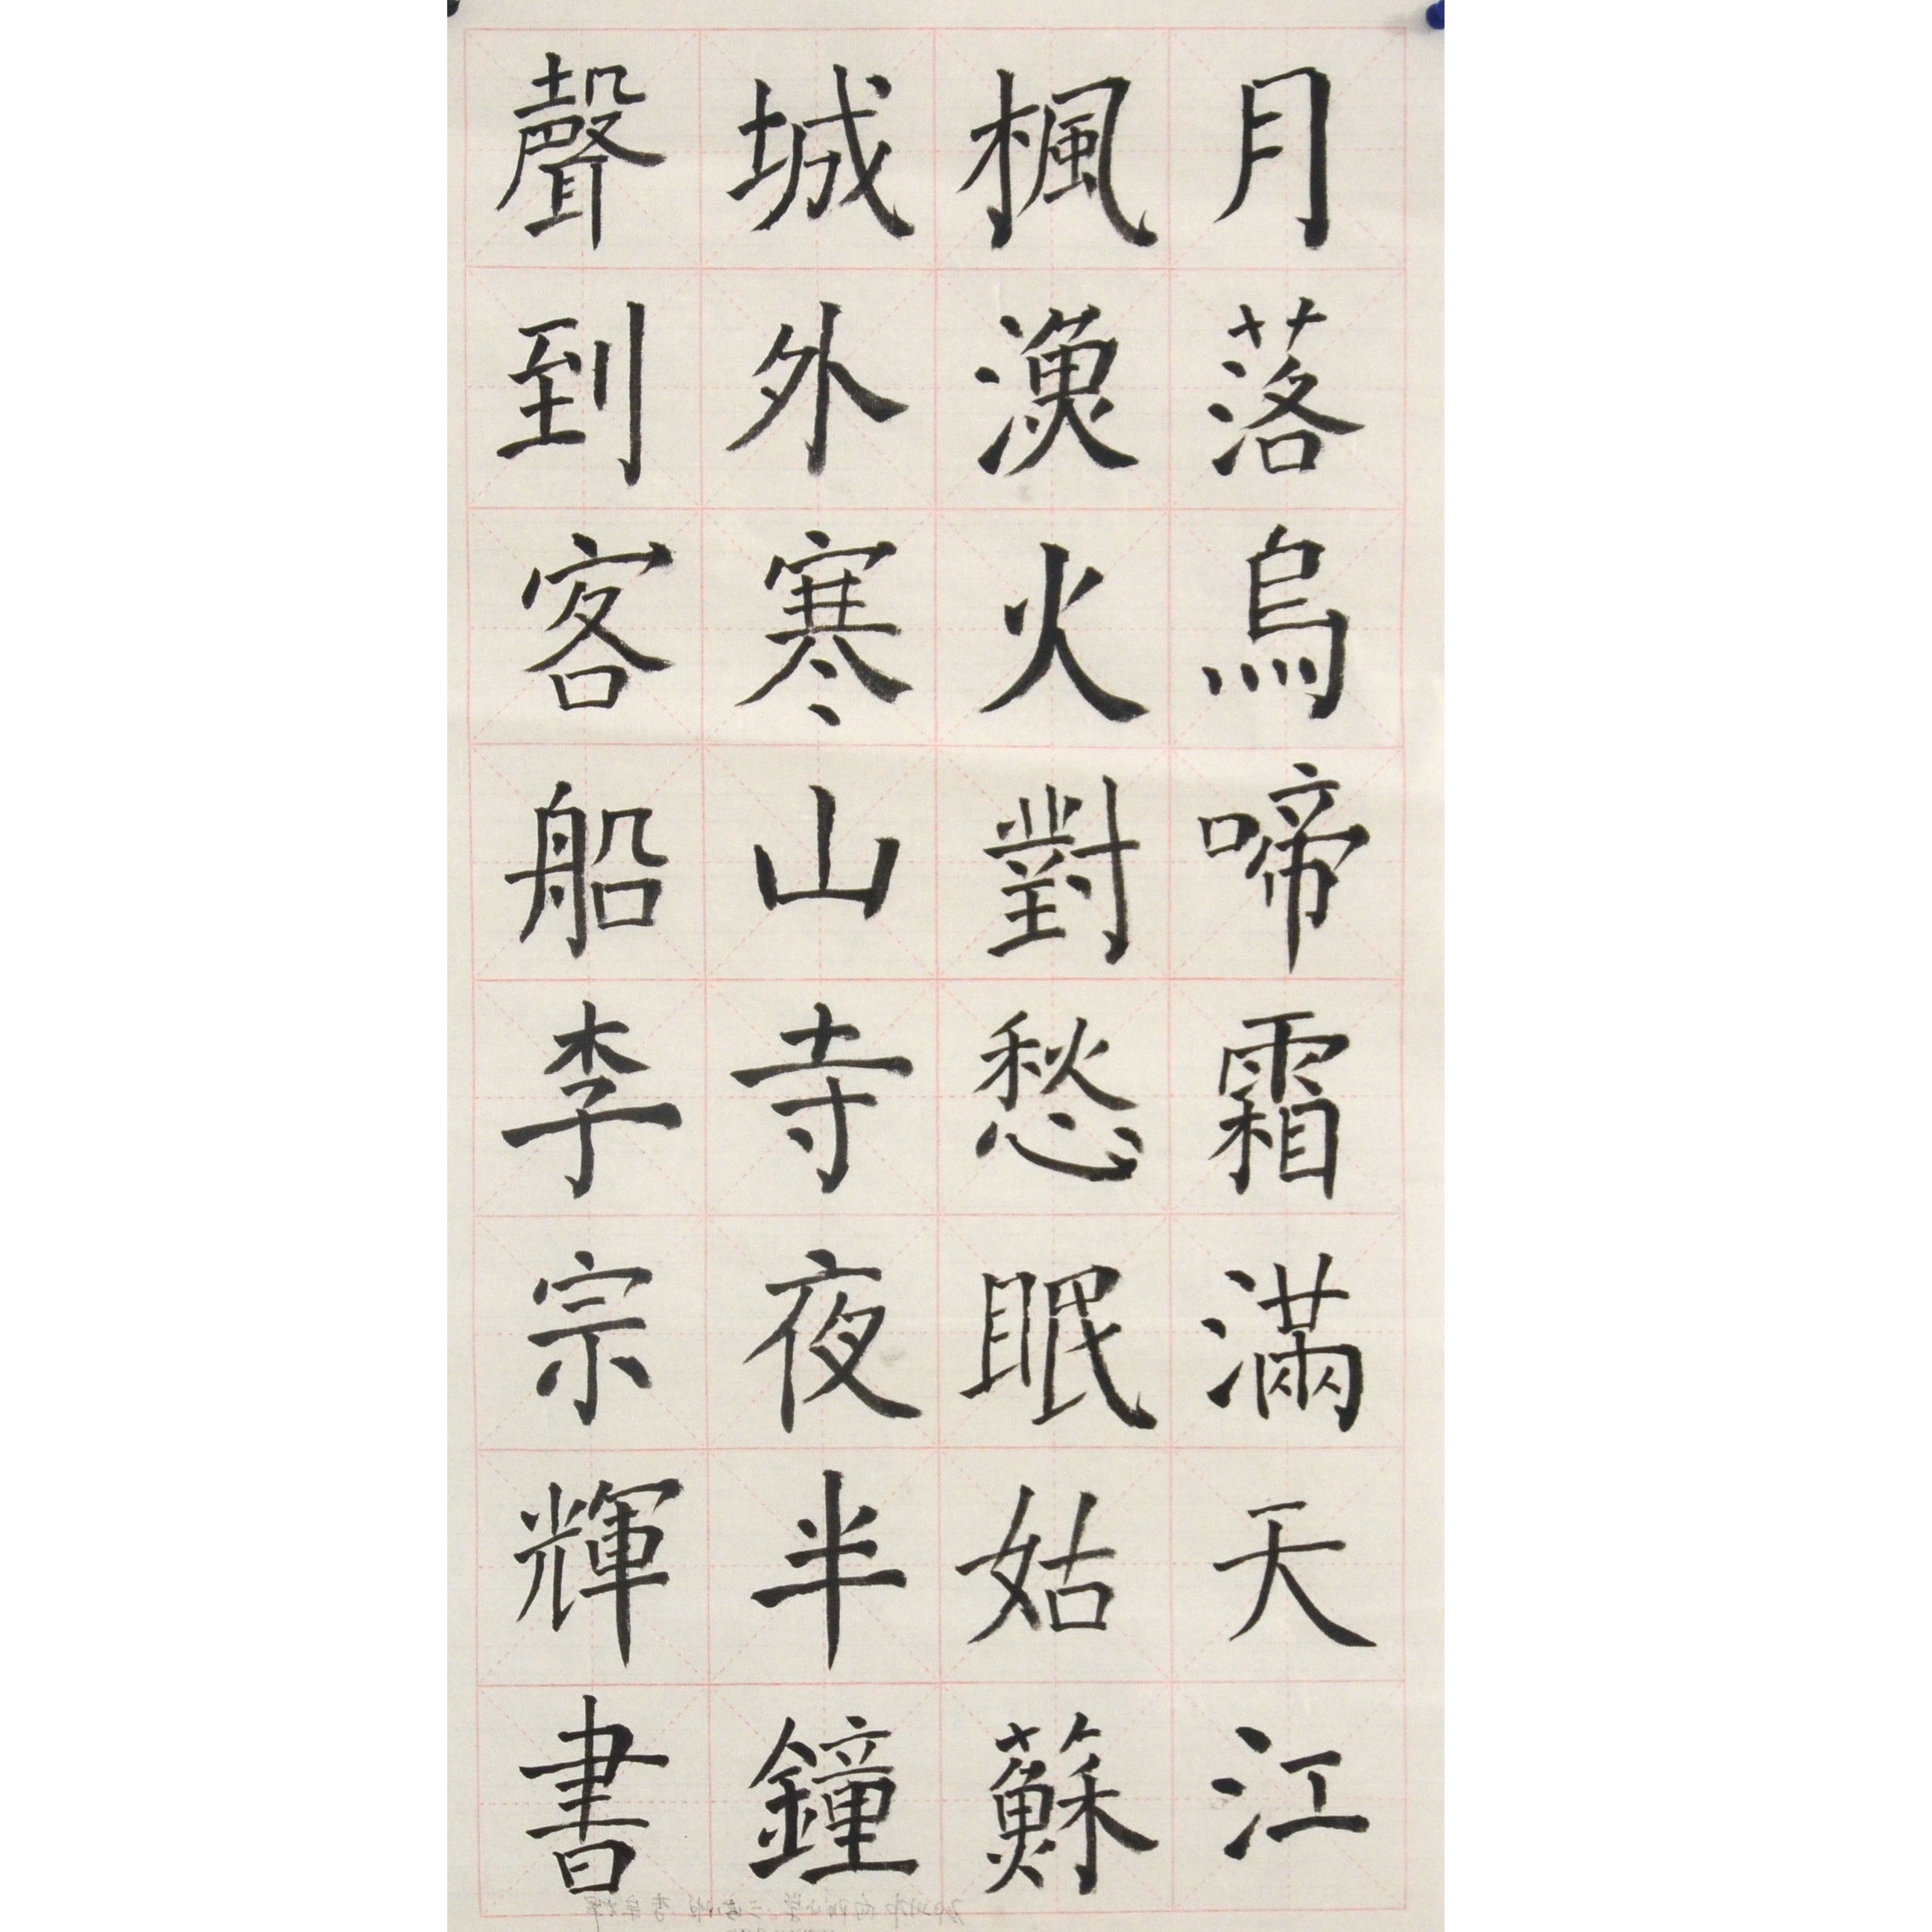 月落烏啼霜滿天江
楓漁火對愁眠姑蘇
城外寒山寺夜半鐘
聲到客船李宗輝書